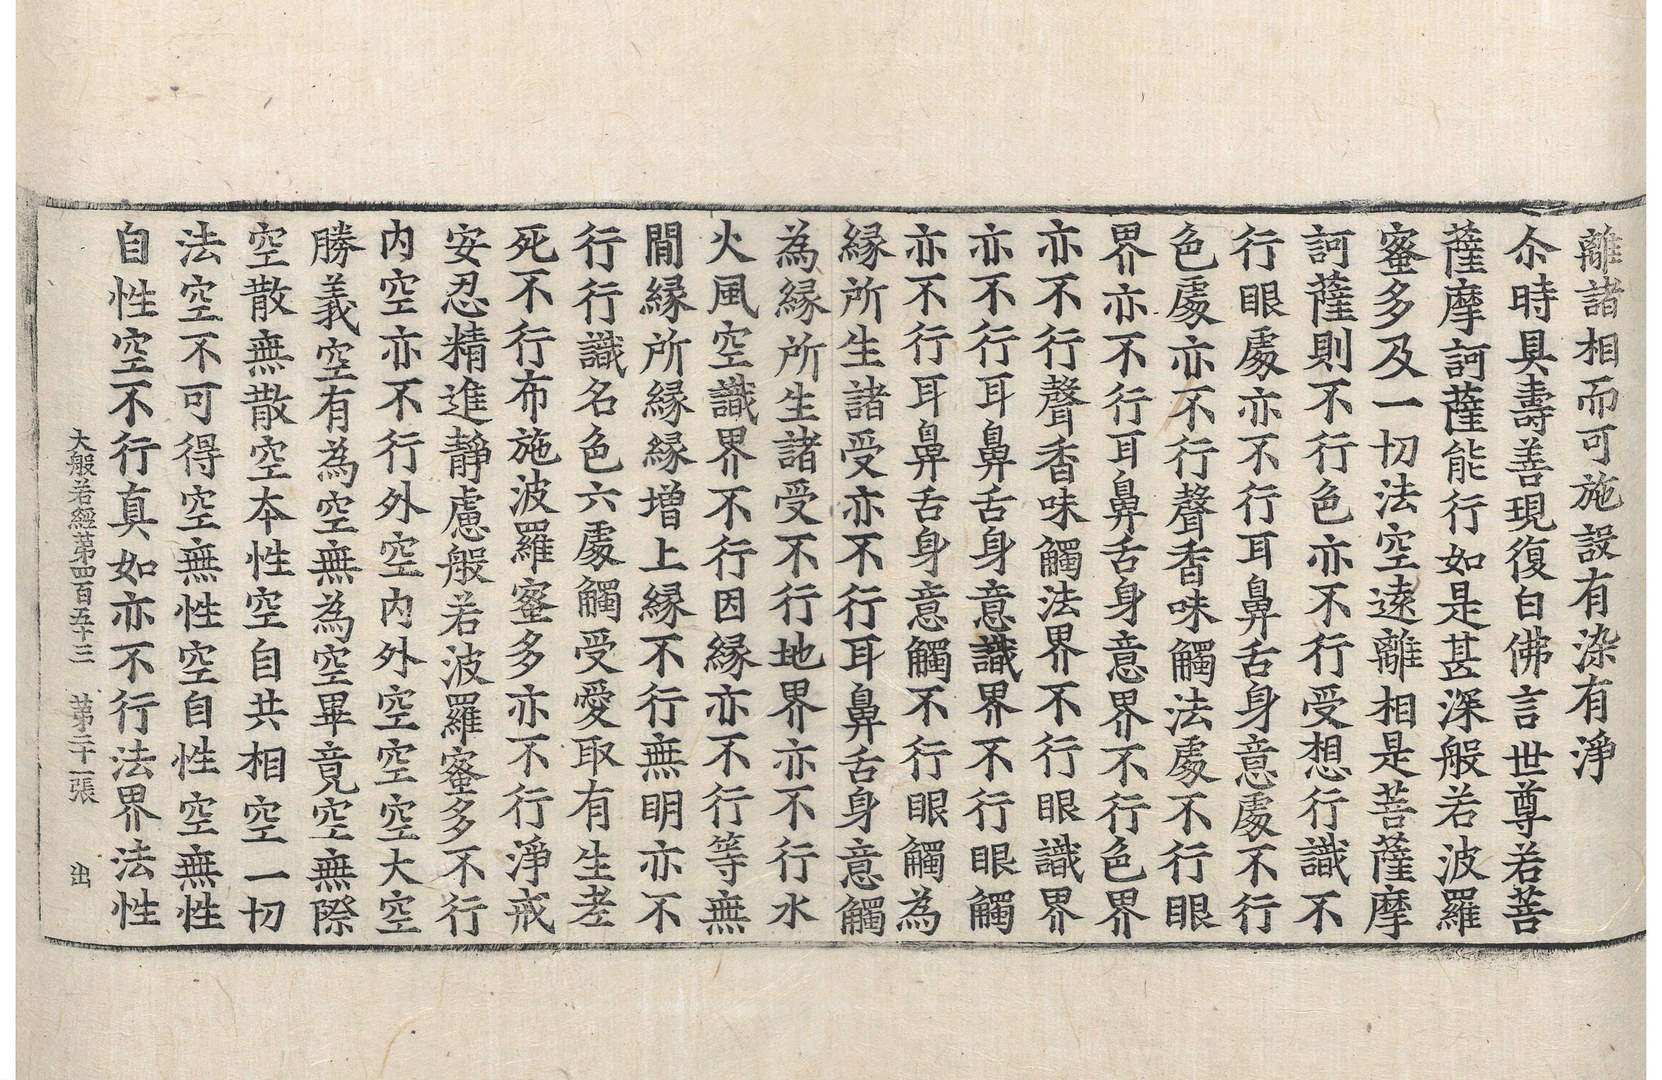 離諸相而可施設有染有淨
尒時具壽善現復白佛言世尊若菩
薩摩訶薩能行如是甚深般若波羅
蜜多及一切法空遠離相是菩薩摩
訶薩則不行色亦不行受想行識不
行眼處亦不行耳鼻舌身意處不行
色處亦不行聲香味觸法處不行眼
界亦不行耳鼻舌身意界不行色界
亦不行聲香味觸法界不行眼識界
亦不行耳鼻舌身意識界不行眼觸
亦不行耳鼻舌身意觸不行眼觸為
緣所生諸受亦不行耳鼻舌身意觸
為緣所生諸受不行地界亦不行水
火風空識界不行因緣亦不行等無
間緣所緣緣增上緣不行無明亦不
行行識名色六處觸受愛取有生老
死不行布施波羅蜜多亦不行淨戒
安忍精進靜慮般若波羅蜜多不行
內空亦不行外空內外空空空大空
勝義空有為空無為空畢竟空無際
空散無散空本性空自共相空一切
法空不可得空無性空自性空無性
自性空不行真如亦不行法界法性
大般若經第四百五十三 第二十一張 出